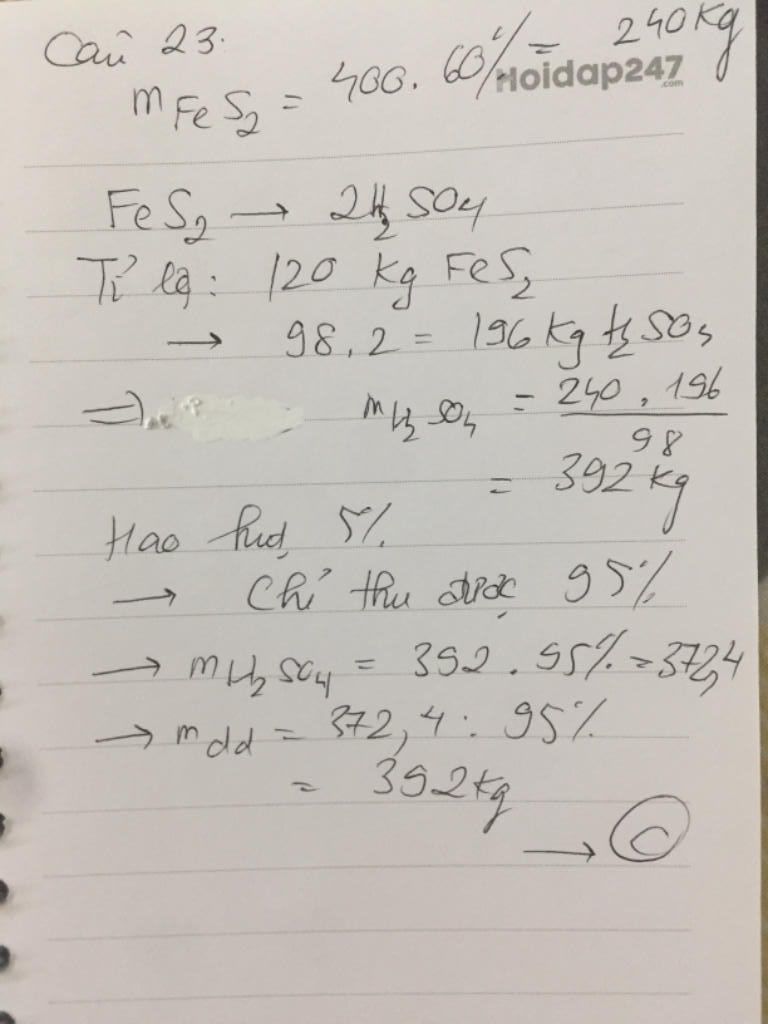 Câu 23.
m FeS2 = 400. 60% = 240 Kg
Hoidap247
.com
FeS2 → 2H2SO4
Tỉ lệ: 120 Kg FeS2
→ 98.2 = 196 Kg H2SO4
=> mH2SO4 = 240 . 196 / 98
= 392 kg
Hao hụt 5%
→ Chỉ thu được 95%
→ mH2SO4 = 392 . 95% = 372,4
→ mdd = 372,4 : 95%
= 392 kg
→ C